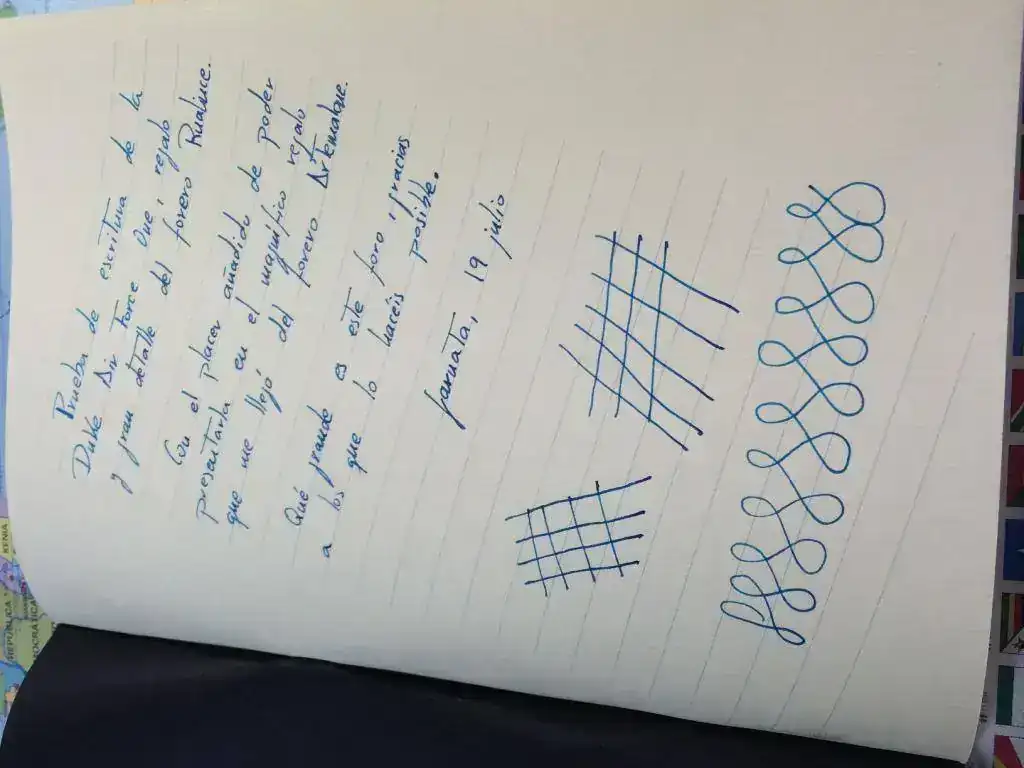 Prueba de escritura de la
Duke Air Force One, regalo
y gran detalle del forero Rualinc.
Con el placer añadido de poder
presentarla en el magnífico regalo
que me llegó del forero Artemabe.
Qué grande es este foro, gracias
a los que lo hacéis posible.
Granata, 19 julio
KENIA
REPÚBLICA